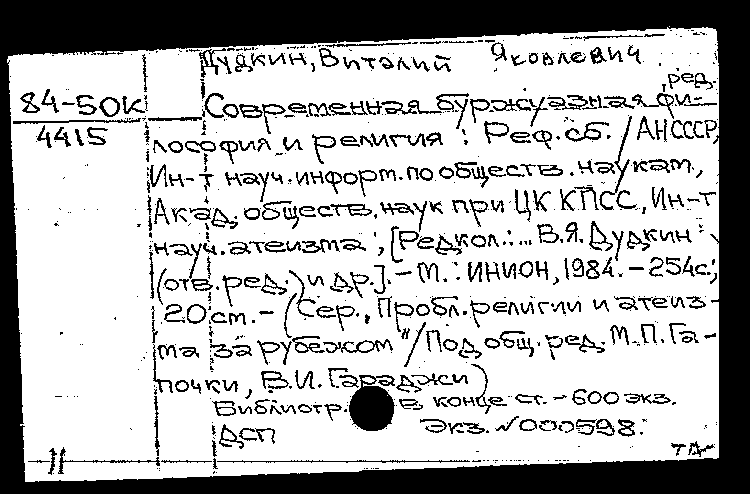 Дудкин, Виталий Яковлевич
, ред.
84-50К Современная буржуазная фи-
4415 лософия и религия : Реф. сб. / АН СССР,
Ин-т науч. информ. по обществ. наукам,
Акад. обществ. наук при ЦК КПСС, Ин-т
науч. атеизма ; [Редкол.: ... В.Я. Дудкин
(отв. ред.) и др.]. – М. : ИНИОН, 1984. – 254с.;
20 см. – (Сер., Пробл. религии и атеиз-
ма за рубежом" / Под общ. ред. М.П. Га-
почки, В.И. Гараджи)
Библиогр. в конце ст. – 600 экз.
Экз. №000598.
ДСП
11